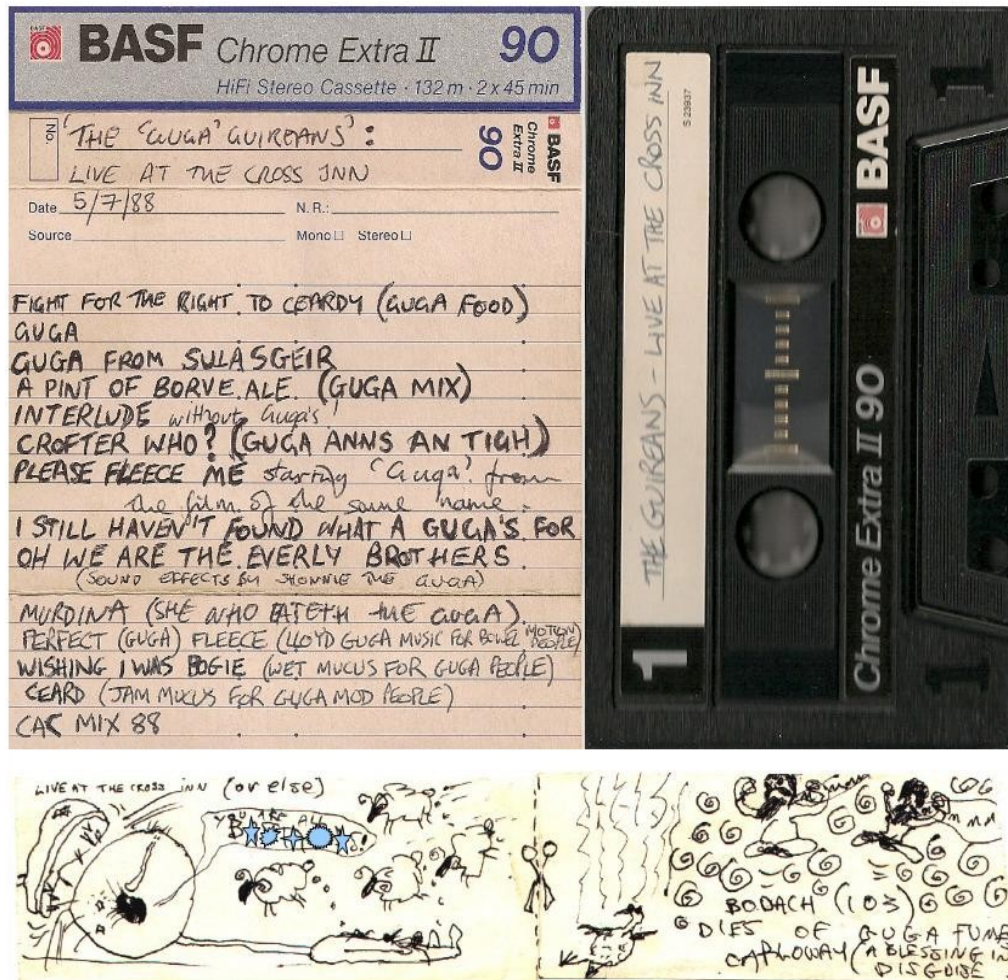 BASF Chrome Extra II 90
HiFi Stereo Cassette · 132 m · 2 x 45 min
No.
'THE 'GUGA' GUIREANS':
LIVE AT THE CROSS INN
BASF
Chrome Extra II
90
Date 5/7/88 N. R.:
Source Mono Stereo
FIGHT FOR THE RIGHT TO CEARDY (GUGA FOOD)
GUGA
GUGA FROM SULASGEIR
A PINT OF BORVE ALE. (GUGA MIX)
INTERLUDE without Guga's!
CROFTER WHO? (GUGA ANNS AN TIGH)
PLEASE FLEECE ME starring 'Guga' from
the film of the same name.
I STILL HAVEN'T FOUND WHAT A GUGA'S FOR
OH WE ARE THE EVERLY BROTHERS.
(SOUND EFFECTS BY SHONNIE THE GUGA)
MURDINA (SHE WHO EATETH THE GUGA).
PERFECT (GUGA) FLEECE (LLOYD GUGA MUSIC FOR BOWEL MOTION PEOPLE)
WISHING I WAS BOGIE (WET MUCUS FOR GUGA PEOPLE)
CEARD (JAM MUCUS FOR GUGA MOD PEOPLE)
CAC MIX 88
THE GUIREANS - LIVE AT THE CROSS INN
S 23937
1
BASF
Chrome Extra II 90
1
1
LIVE AT THE CROSS INN (or else)
YOU ARE ALL
B
BODACH (103)
DIES OF GUGA FUMES
CARLOWAY (A BLESSING IN
DISGUISE